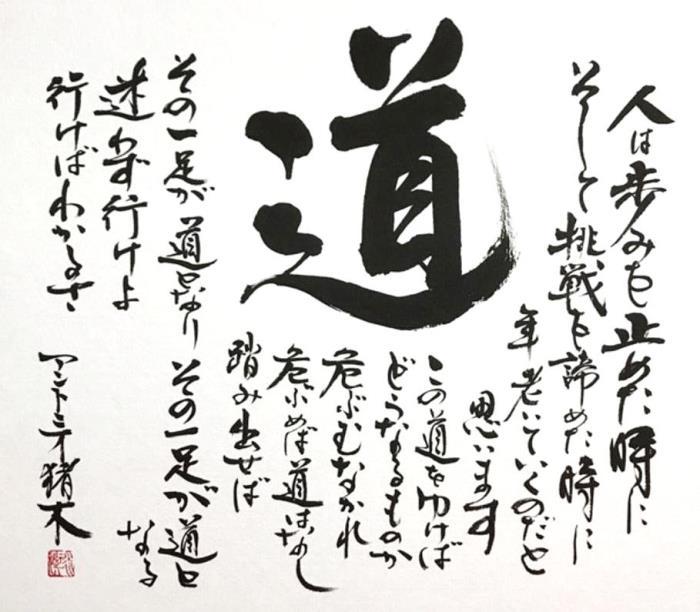 人は歩みを止めた時に
そして挑戦を諦めた時に
年老いていくのだと
思います
道
この道をゆけば
どうなるものか
危ぶむなかれ
危ぶめば道はなし
踏み出せば
その一足が道となり その一足が道と
なる
迷わず行けよ
行けばわかるさ
アントニオ猪木